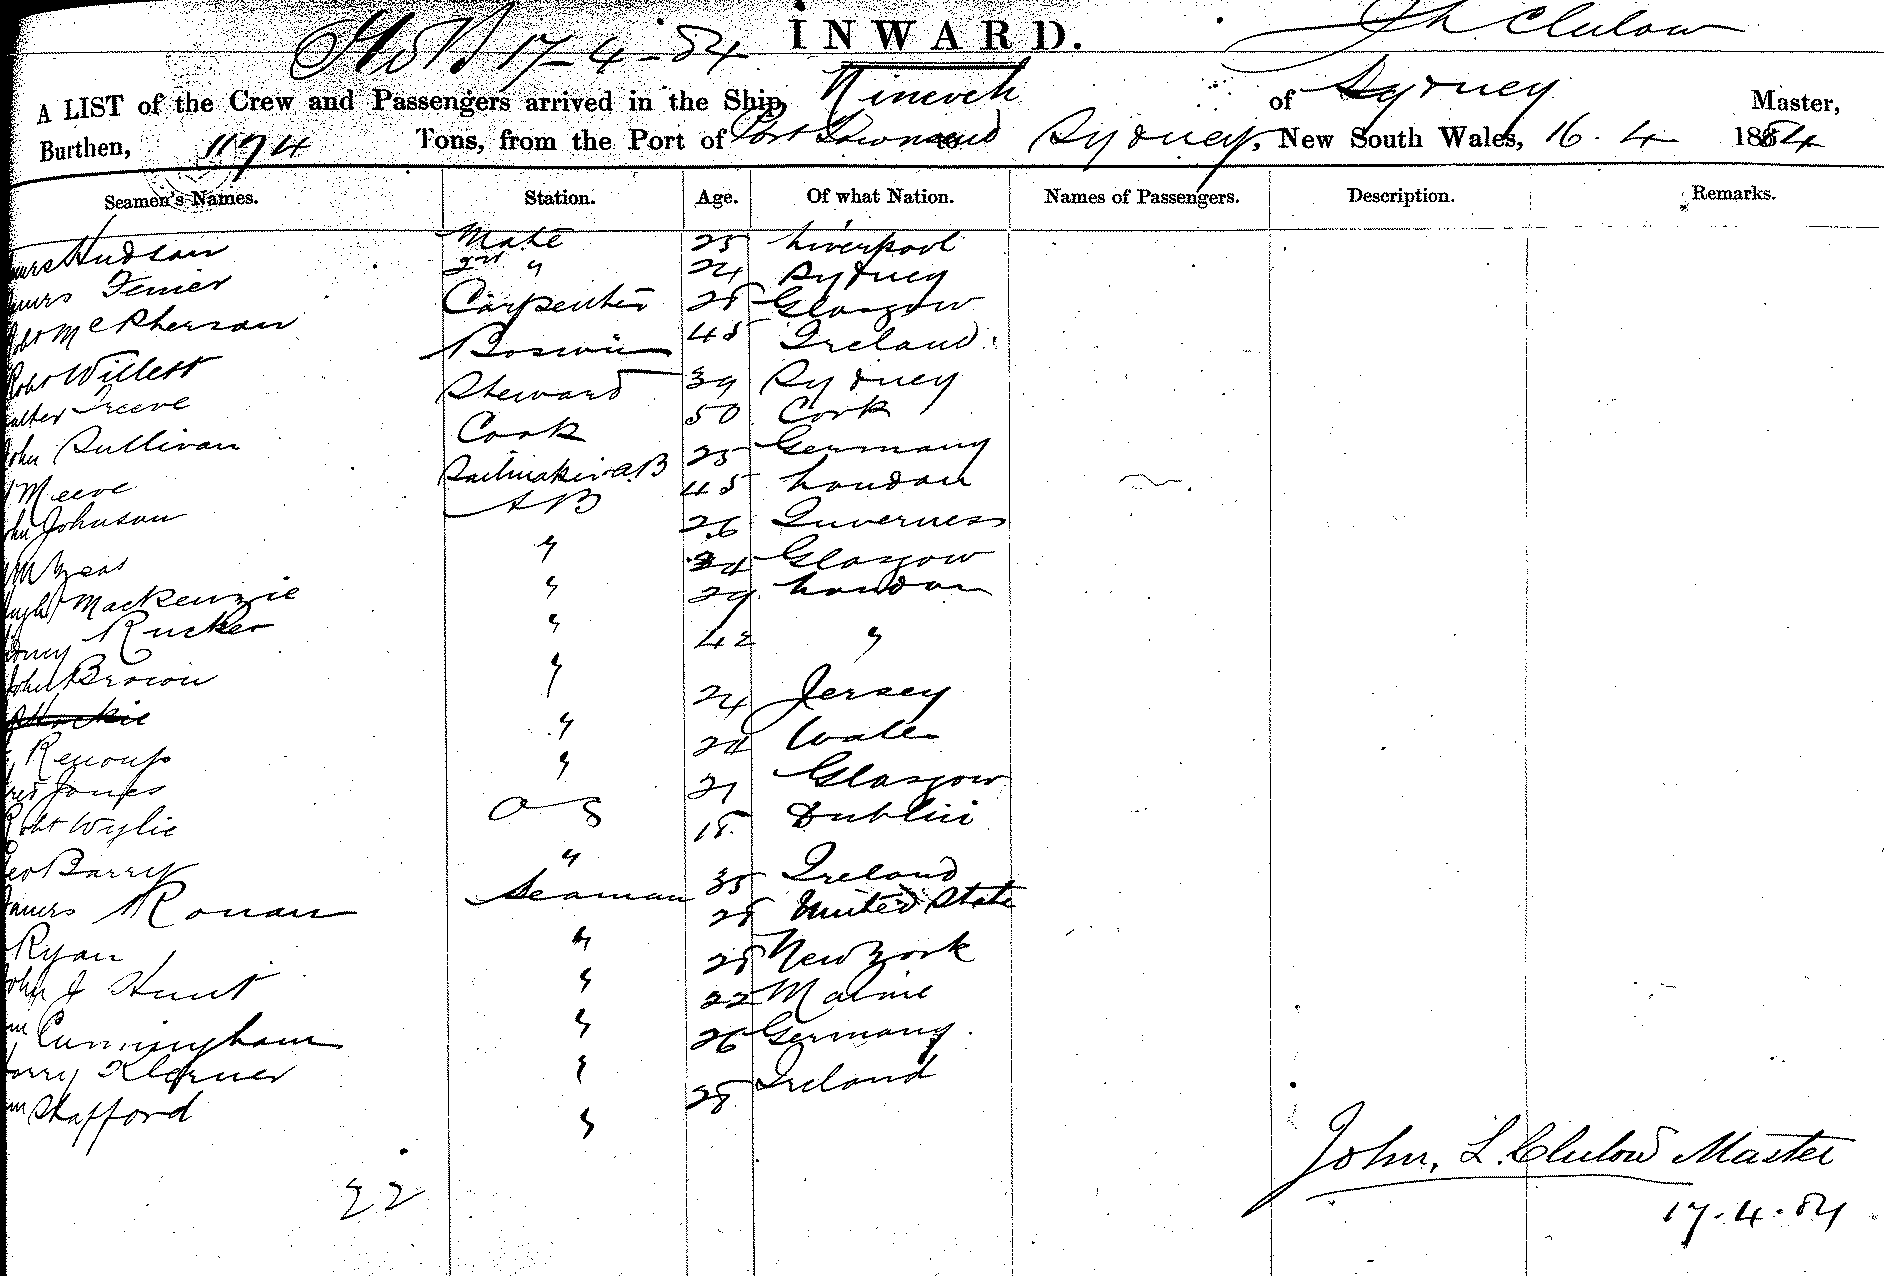 INWARD.
17-4-84
Jn L Clulow
A LIST of the Crew and Passengers arrived in the Ship, Nineveh of Sydney Master,
Burthen, 1194 Tons, from the Port of Port Townsend to Sydney, New South Wales, 16.4 1884
Seamen's Names. Station. Age. Of what Nation. Names of Passengers. Description. Remarks.
Hudson Mate 25 Liverpool
2nd " 24 Sydney
Robt McPherson Carpenter 28 Glasgow
Robt Willett Boswin 45 Ireland
Walter Treeve Steward 39 Sydney
John Sullivan Cook 50 Cork
Meeve Sailmaker A.B 25 Germany
John Johnson AB 45 London
26 Inverness
Mackenzie " Glasgow
Rucker " 29 London
John Brown " 42 "
Renouf " 24 Jersey
Jones " Wales
Robt Wylie " 21 Glasgow
Geo Barry OS 18 Dublin
James Ronan " 35 Ireland
Ryan Seaman 28 United State
John J Hunt " 28 New York
Cunningham " 22 Maine
Harry " 26 Germany
Stafford " 28 Ireland
"
22
John, L. Clulow Master
17.4.84